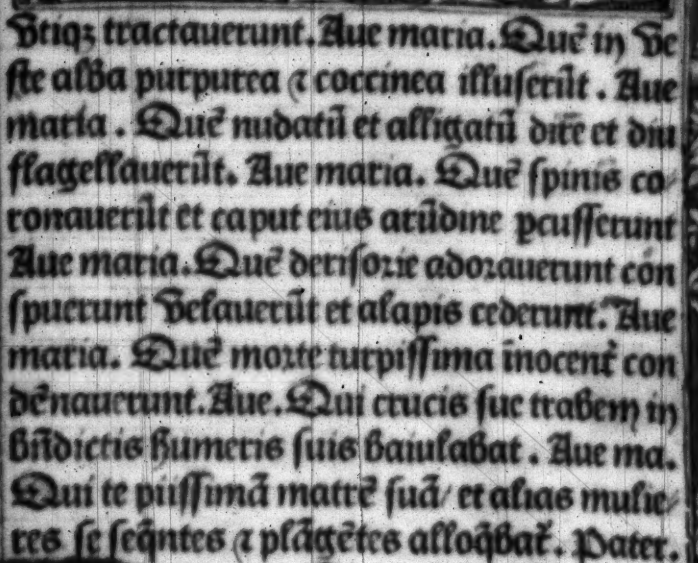 Vtiqꝫ tractauerunt. Aue maria. Quē in ve
ste alba purpurea ⁊ coccinea illuserūt. Aue
maria. Quē nudatū et alligatū dire et diu
flagellauerūt. Aue maria. Quē spinis co⸗
ronauerūt et caput eius arūdine ꝑcusserunt
Aue maria. Quē derisorie adorauerunt con
spuerunt velauerūt et alapis cederunt. Aue
maria. Quē morte turpissima īnocent̄ con
dēnauerunt. Aue. Qui crucis sue trabem in
bn̄dictis humeris suis baiulabat. Aue ma.
Qui te piissimā matrē suā/ et alias mulie⸗
res se seq̄ntes ⁊ plāgētes alloq̄bat̄. Pater.